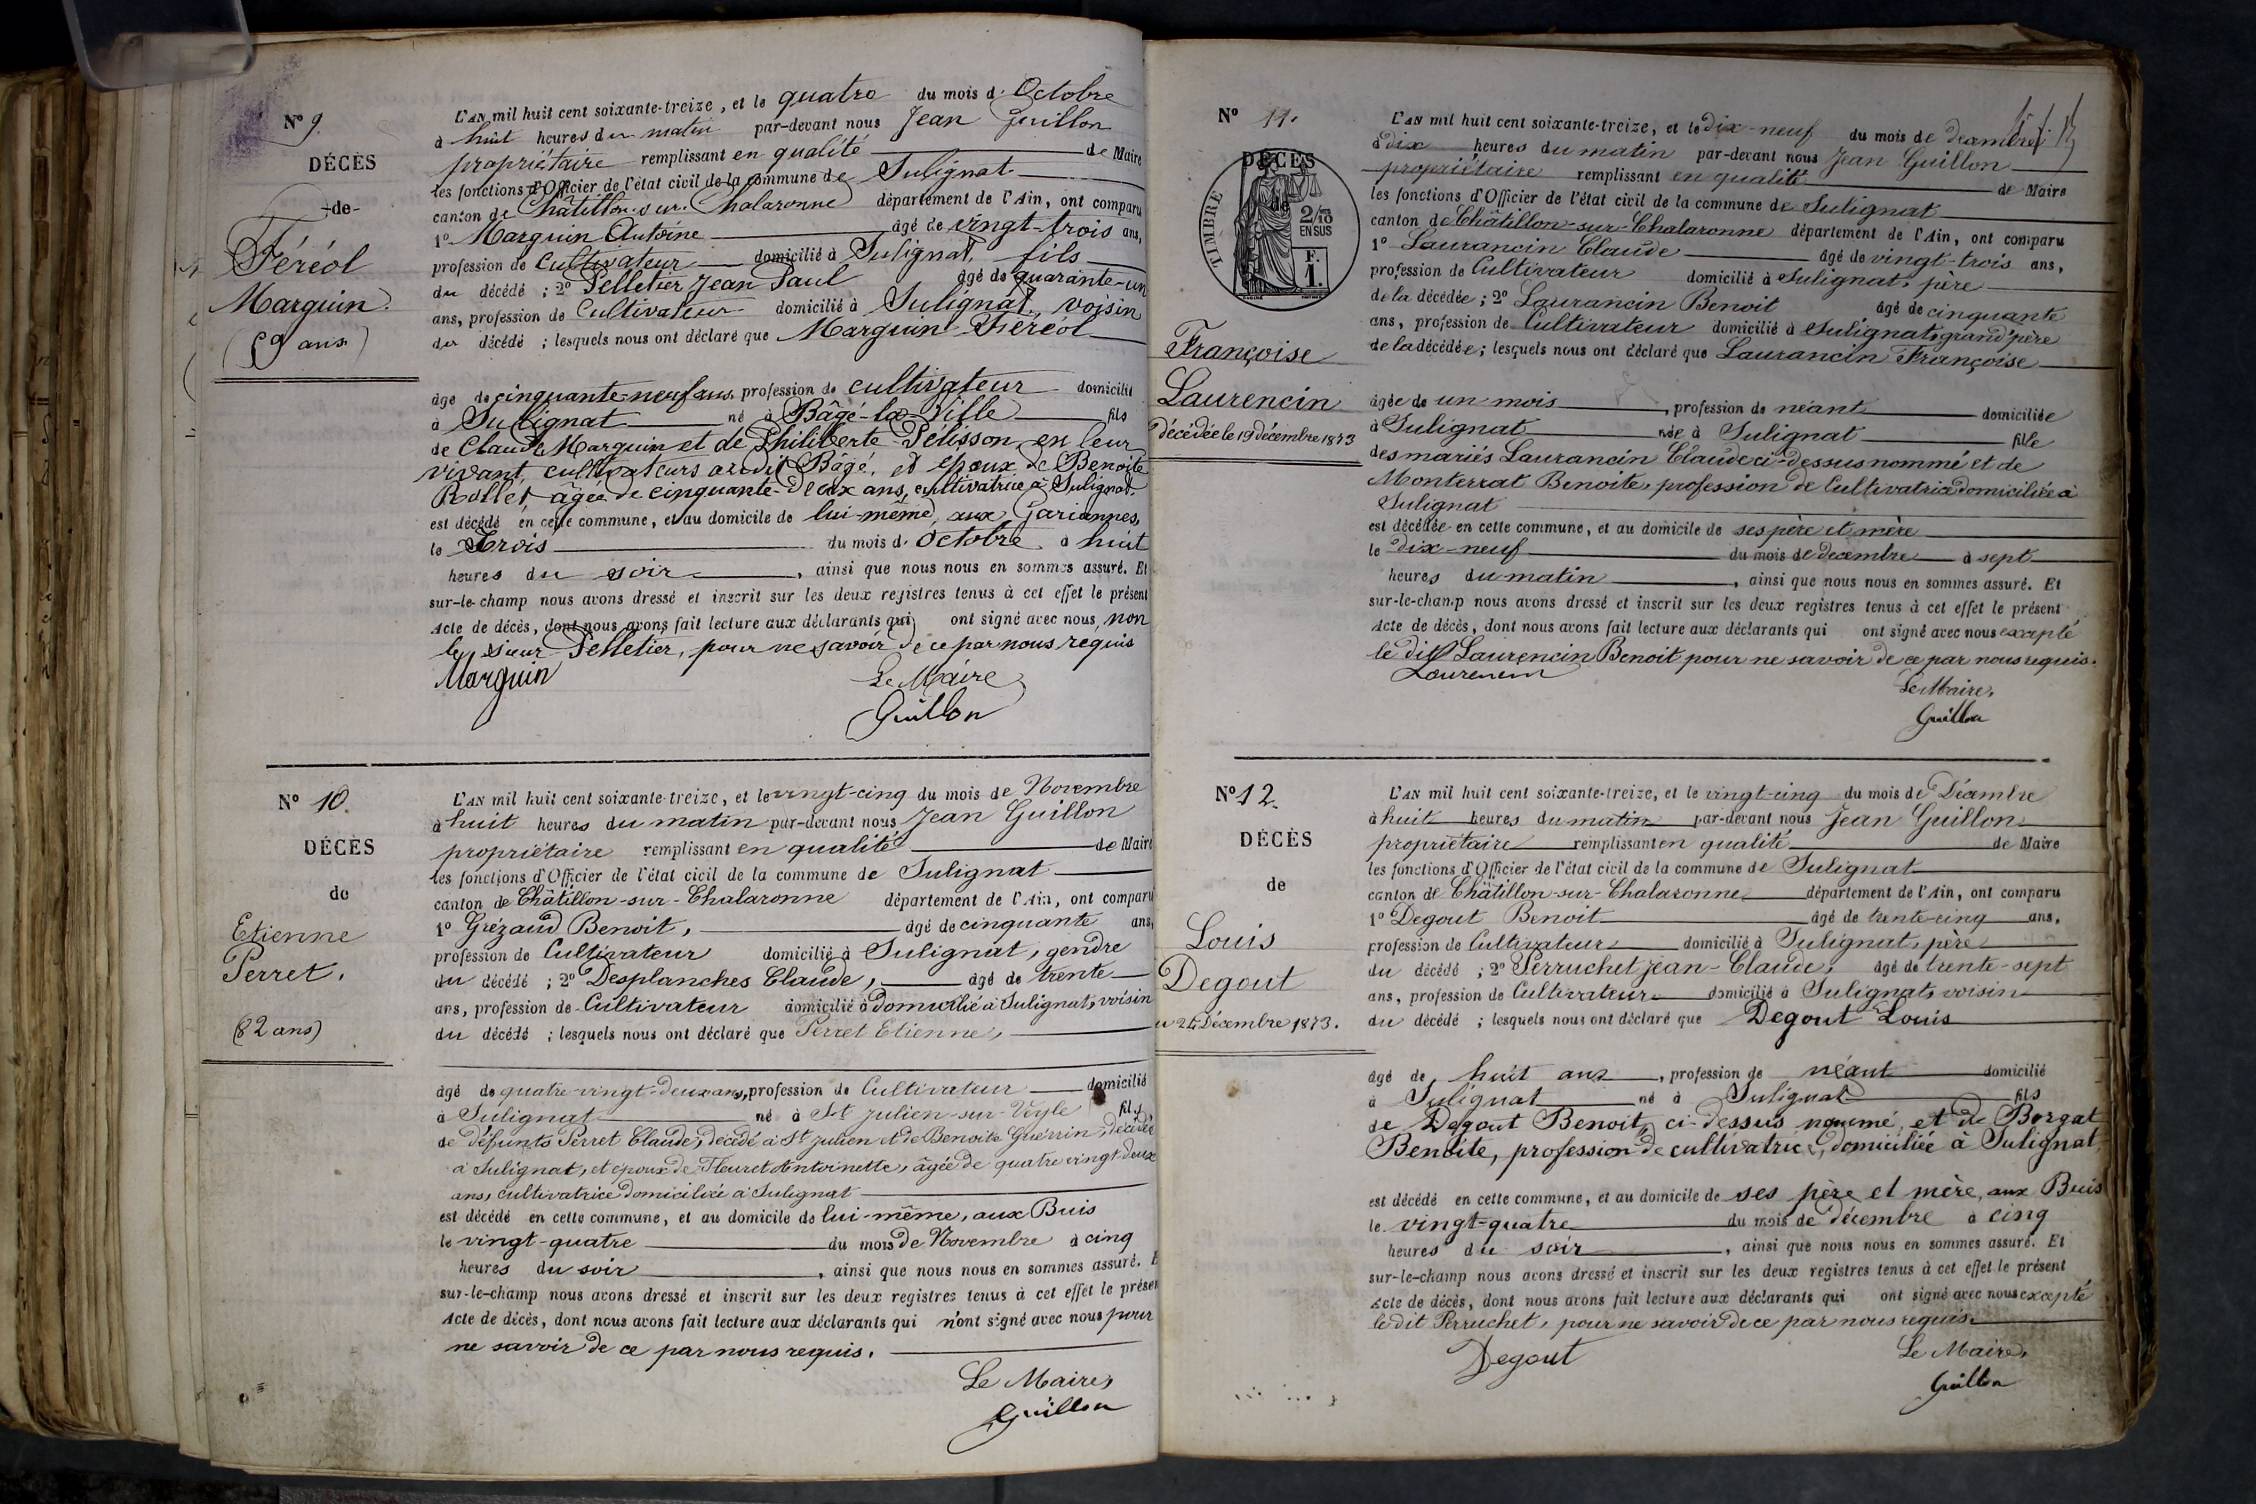 Nº 9.
DÉCÈS
de
Féréol
Marguin.
(59 ans)
L'AN mil huit cent soixante-treize, et le quatre du mois d'Octobre
à huit heures du matin par-devant nous Jean Guillon
propriétaire remplissant en qualité de Maire
les fonctions d'Officier de l'état civil de la commune de Sulignat
canton de Châtillon-sur-Chalaronne département de l'Ain, ont comparu
1º Marguin Antoine âgé de vingt-trois ans,
profession de Cultivateur domicilié à Sulignat, fils
du décédé ; 2º Pelletier Jean Paul âgé de quarante-un
ans, profession de Cultivateur domicilié à Sulignat, voisin
du décédé ; lesquels nous ont déclaré que Marguin Féréol
âgé de cinquante-neuf ans, profession de cultivateur domicilié
à Sulignat né à Bâgé-la-Ville fils
de Claude Marguin et de Philiberte Pélisson en leur
vivant, cultivateurs audit Bâgé, et époux de Benoite
Rollet, âgée de cinquante-deux ans, cultivatrice à Sulignat.
est décédé en cette commune, et au domicile de lui-même, aux Gariannes,
le Trois du mois d'Octobre à huit
heures du soir, ainsi que nous nous en sommes assuré. Et
sur-le-champ nous avons dressé et inscrit sur les deux registres tenus à cet effet le présent
Acte de décès, dont nous avons fait lecture aux déclarants qui ont signé avec nous, non
le sieur Pelletier, pour ne savoir de ce par nous requis
Marguin Le Maire
Guillon
Nº 10.
DÉCÈS
de
Etienne
Perret.
(82 ans)
L'AN mil huit cent soixante-treize, et le vingt-cinq du mois de Novembre
à huit heures du matin par-devant nous Jean Guillon
propriétaire remplissant en qualité de Maire
les fonctions d'Officier de l'état civil de la commune de Sulignat
canton de Châtillon-sur-Chalaronne département de l'Ain, ont comparu
1º Grézaud Benoit, âgé de cinquante ans,
profession de Cultivateur domicilié à Sulignat, gendre
du décédé ; 2º Desplanches Claude, âgé de trente
ans, profession de Cultivateur domicilié à domicilié à Sulignat, voisin
du décédé ; lesquels nous ont déclaré que Perret Etienne,
âgé de quatre-vingt-deux ans, profession de Cultivateur domicilié
à Sulignat né à St Julien-sur-Veyle fils
de défunts Perret Claude, décédé à St Julien et de Benoite Guérrin, décédée
à Sulignat, et époux de Fleuret Antoinette, âgée de quatre vingt deux
ans, cultivatrice domiciliée à Sulignat
est décédé en cette commune, et au domicile de lui-même, aux Buis
le vingt-quatre du mois de Novembre à cinq
heures du soir, ainsi que nous nous en sommes assuré. E
sur-le-champ nous avons dressé et inscrit sur les deux registres tenus à cet effet le présen
Acte de décès, dont nous avons fait lecture aux déclarants qui n'ont signé avec nous pour
ne savoir de ce par nous requis.
Le Maire,
Guillon
Nº 11.
DÉCÈS
de
TIMBRE
2/10
EN SUS
F.
1.
Françoise
Laurencin
décédée le 19 décembre 1873
L'AN mil huit cent soixante-treize, et le dix-neuf du mois de décembre
à dix heures du matin par-devant nous Jean Guillon
propriétaire remplissant en qualité de Maire
les fonctions d'Officier de l'état civil de la commune de Sulignat
canton de Châtillon-sur-Chalaronne département de l'Ain, ont comparu
1º Laurancin Claude âgé de vingt-trois ans,
profession de Cultivateur domicilié à Sulignat, père
de la décédée ; 2º Laurancin Benoit âgé de cinquante
ans, profession de Cultivateur domicilié à Sulignat, grand'père
de la décédée ; lesquels nous ont déclaré que Laurancin Françoise
âgée de un mois, profession de néant domiciliée
à Sulignat née à Sulignat fille
des mariés Laurancin Claude ci-dessus nommé et de
Monterrat Benoite, profession de Cultivatrice domiciliée à
Sulignat
est décédée en cette commune, et au domicile de ses père et mère
le dix-neuf du mois de décembre à sept
heures du matin, ainsi que nous nous en sommes assuré. Et
sur-le-champ nous avons dressé et inscrit sur les deux registres tenus à cet effet le présent
Acte de décès, dont nous avons fait lecture aux déclarants qui ont signé avec nous excepté
le dit Laurencin Benoit pour ne savoir de ce par nous requis.
Laurencin Le Maire,
Guillon
Nº 12.
DÉCÈS
de
Louis
Degout
24 Décembre 1873.
L'AN mil huit cent soixante-treize, et le vingt-cinq du mois de Décembre
à huit heures du matin par-devant nous Jean Guillon
propriétaire remplissant en qualité de Maire
les fonctions d'Officier de l'état civil de la commune de Sulignat
canton de Châtillon-sur-Chalaronne département de l'Ain, ont comparu
1º Degout Benoit âgé de trente-cinq ans,
profession de Cultivateur domicilié à Sulignat, père
du décédé ; 2º Perruchet Jean-Claude, âgé de trente-sept
ans, profession de Cultivateur domicilié à Sulignat, voisin
du décédé ; lesquels nous ont déclaré que Degout Louis
âgé de huit ans, profession de néant domicilié
à Sulignat né à Sulignat fils
de Degout Benoit, ci-dessus nommé, et de Borgat
Benoite, profession de cultivatrice, domiciliée à Sulignat
est décédé en cette commune, et au domicile de ses père et mère, aux Buis
le vingt-quatre du mois de décembre à cinq
heures du soir, ainsi que nous nous en sommes assuré. Et
sur-le-champ nous avons dressé et inscrit sur les deux registres tenus à cet effet le présent
Acte de décès, dont nous avons fait lecture aux déclarants qui ont signé avec nous excepté
le dit Perruchet, pour ne savoir de ce par nous requis.
Degout Le Maire,
Guillon